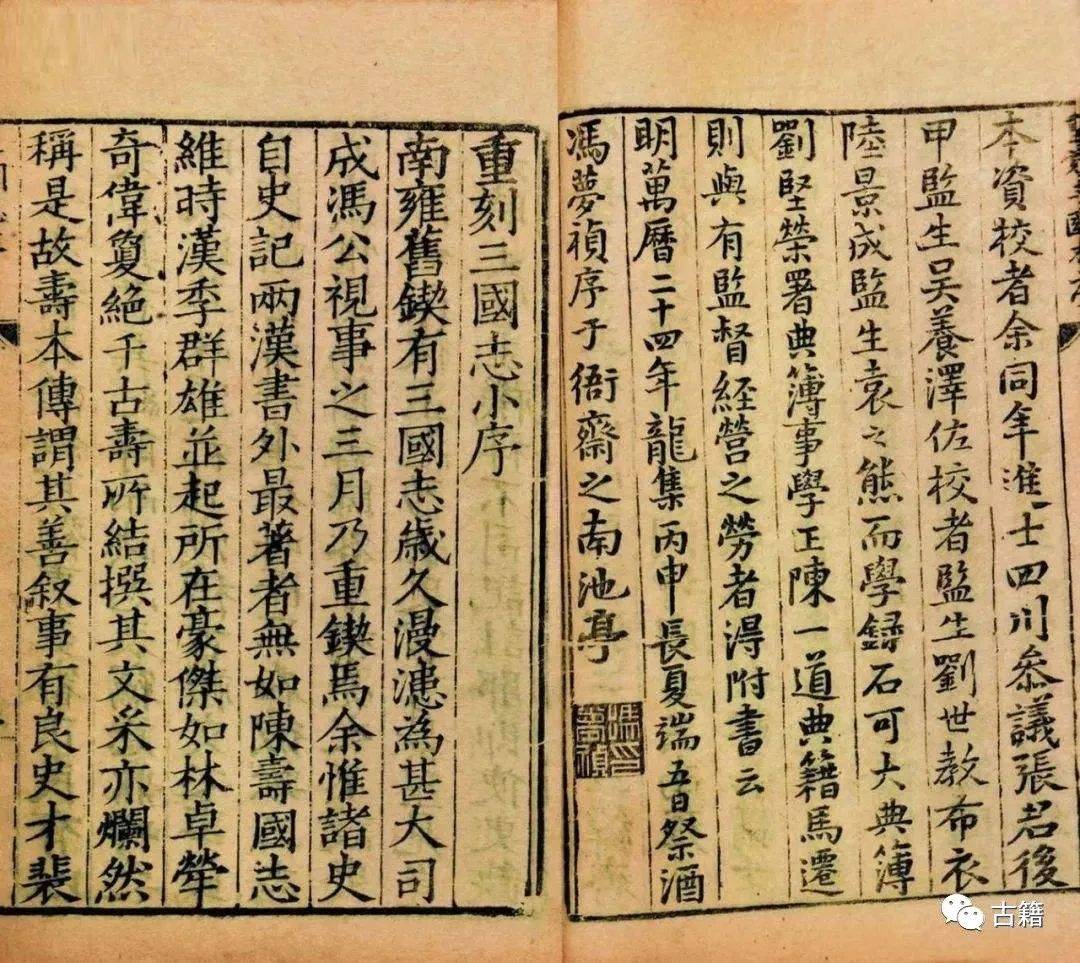 本資校者余同年進士四川叅議張君後
甲監生吴養澤佐校者監生劉世教布衣
陸景成監生袁之熊而學録石可大典簿
劉堅榮署典簿事學正陳一道典籍馬遷
則與有監督經營之勞者得附書云
明萬曆二十四年龍集丙申長夏端五日祭酒
馮夢禎序于衙齋之南池亭
馮印夢禎
重刻三國志小序
南雍舊鍥有三國志歲久漫漶為甚大司
成馮公視事之三月乃重鍥焉余惟諸史
自史記兩漢書外最著者無如陳壽國志
維時漢季群雄並起所在豪傑如林卓犖
奇偉敻絕千古壽所結撰其文采亦爛然
稱是故壽本傳謂其善叙事有良史才裴
古籍